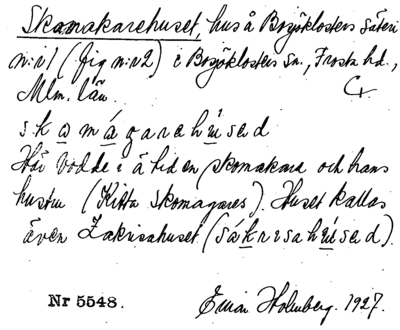 Skomakarehuset, hus å Bosjöklosters säteri
n:r 1 (fig n:r 2) i Bosjöklosters sn., Frosta hd.,
Mlm. län. C.
s k o m á g a r e h ú s e d
Här bodde i ä tid en skomakare och hans
hustru (Kitta Skomagares). Huset kallas
även Zakrisahuset (sákrisahúsed).
Nr 5548. Einar Holmberg. 1927.